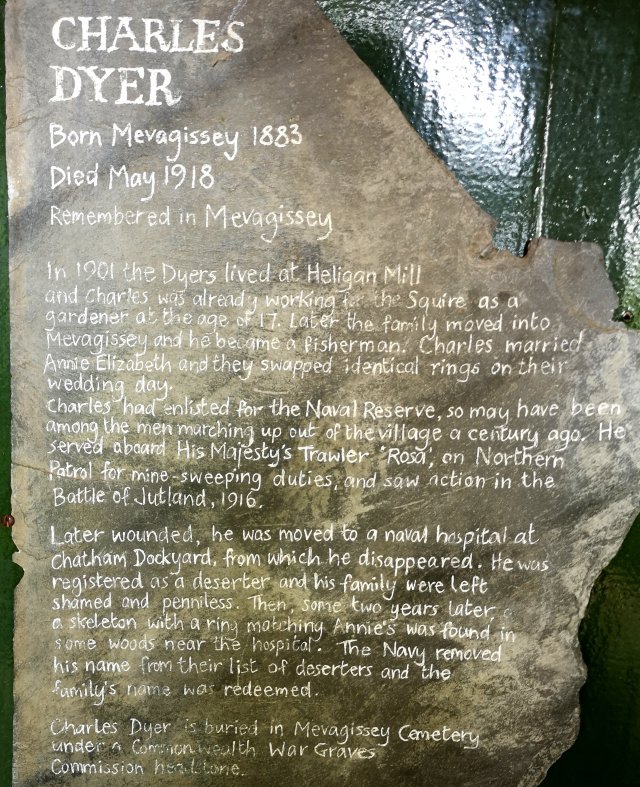 CHARLES
DYER
Born Mevagissey 1883
Died May 1918
Remembered in Mevagissey
In 1901 the Dyers lived at Heligan Mill
and Charles was already working for the Squire as a
gardener at the age of 17. Later the family moved into
Mevagissey and he became a fisherman. Charles married
Annie Elizabeth and they swapped identical rings on their
wedding day.
Charles had enlisted for the Naval Reserve, so may have been
among the men marching up out of the village a century ago. He
served aboard His Majesty's Trawler 'Rosa', on Northern
Patrol for mine-sweeping duties, and saw action in the
Battle of Jutland, 1916.
Later wounded, he was moved to a naval hospital at
Chatham Dockyard, from which he disappeared. He was
registered as a deserter and his family were left
shamed and penniless. Then, some two years later,
a skeleton with a ring matching Annie's was found in
some woods near the hospital. The Navy removed
his name from their list of deserters and the
family's name was redeemed.
Charles Dyer is buried in Mevagissey Cemetery
under a Commonwealth War Graves
Commission headstone.